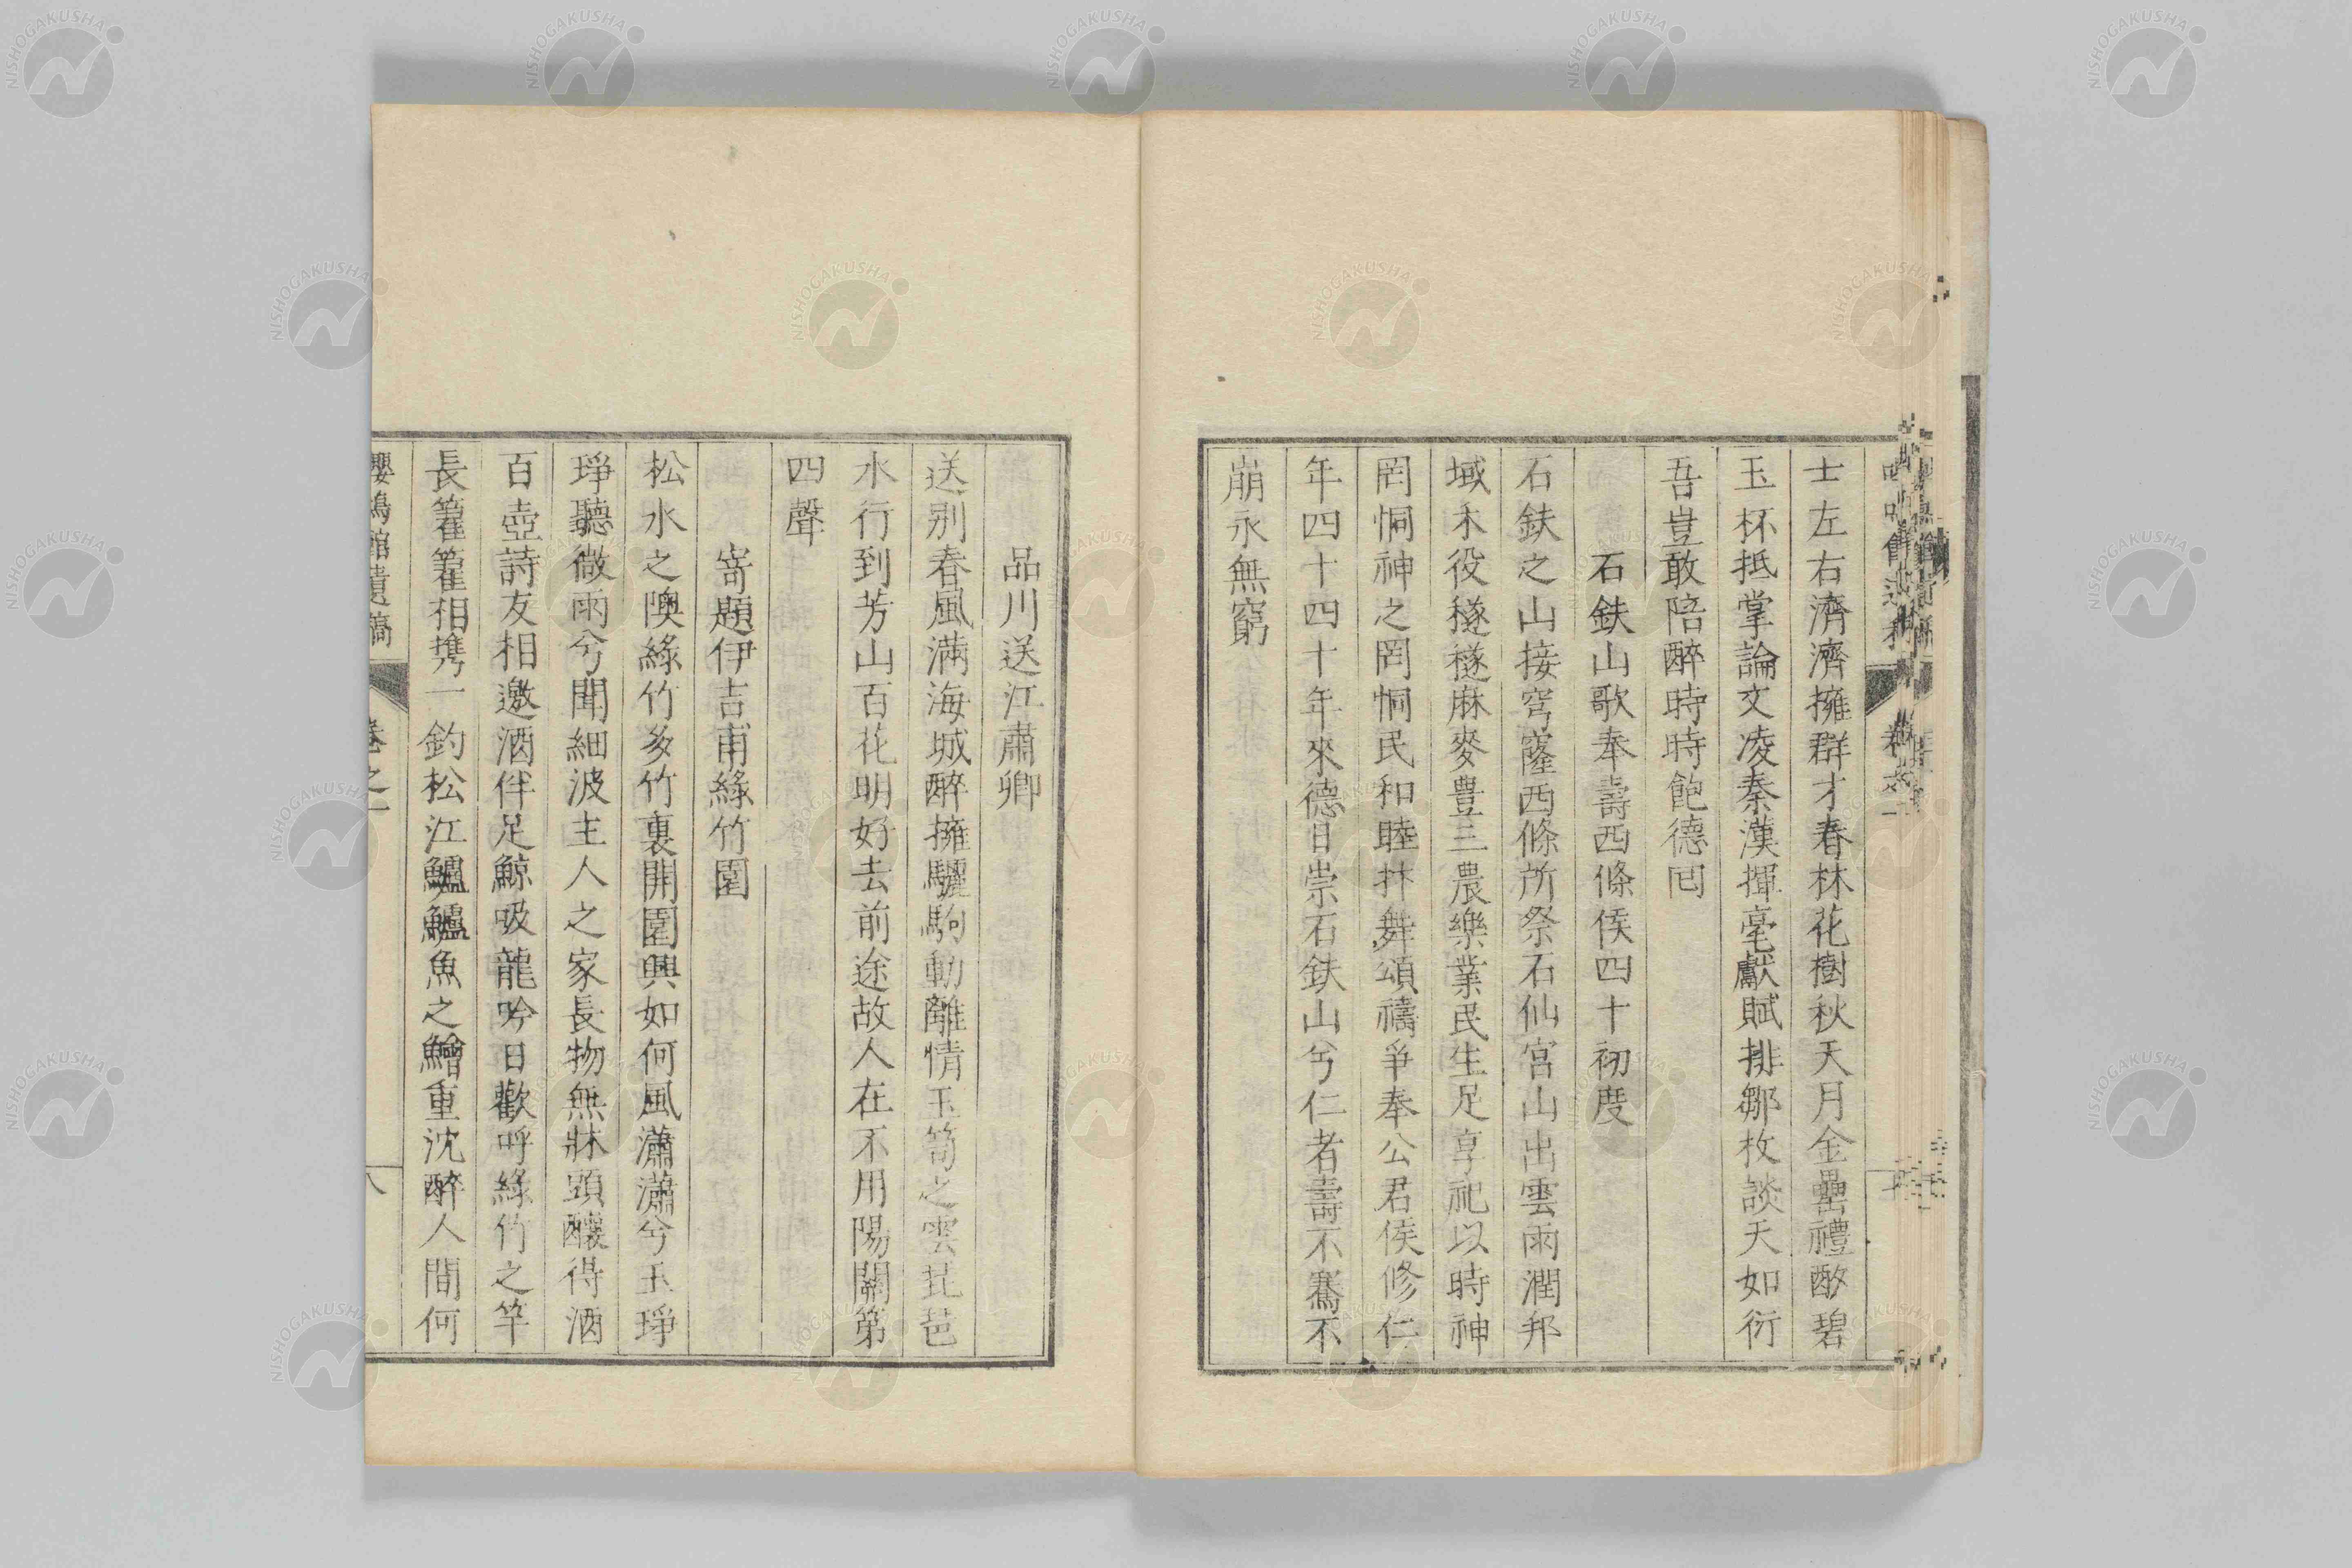 士左右濟濟擁群才春林花樹秋天月金罍禮酌碧
玉杯抵掌論文凌秦漢揮毫獻賦排鄒枚談天如衍
吾豈敢陪醉時時飽德囘
石鈇山歌奉壽西條侯四十初度
石鈇之山接穹窿西條所祭石仙宮山出雲雨潤邦
域禾役穟穟麻麥豊三農樂業民生足享祀以時神
罔恫神之罔恫民和睦抃舞頌禱爭奉公君侯修仁
年四十四十年來德日崇石鈇山兮仁者壽不騫不
崩永無窮
品川送江肅卿
送別春風満海城醉擁驪駒動離情玉笥之雲芘芭
水行到芳山百花明好去前途故人在不用陽關第
四聲
寄題伊吉甫綠竹園
松水之隩綠竹多竹裏開園興如何風瀟瀟兮玉琤
琤聽微雨兮聞細波主人之家長物無牀頭釀得酒
百壺詩友相邀酒伴足鯨吸龍吟日歡呼綠竹之竿
長籊籊相攜一釣松江鱸鱸魚之鱠重沈醉人間何
嚶鳴館遺稿 卷之一 八
NISHOGAKUSHA